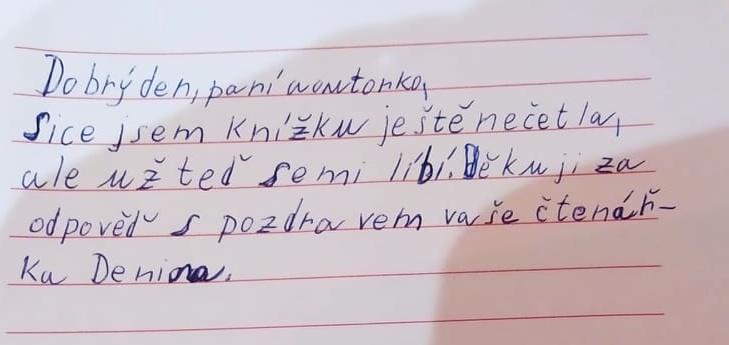 Dobrý den, paní autorko,
Sice jsem knížku ještě nečetla,
ale už teď se mi líbí. Děkuji za
odpověď s pozdravem vaše čtenář-
ka